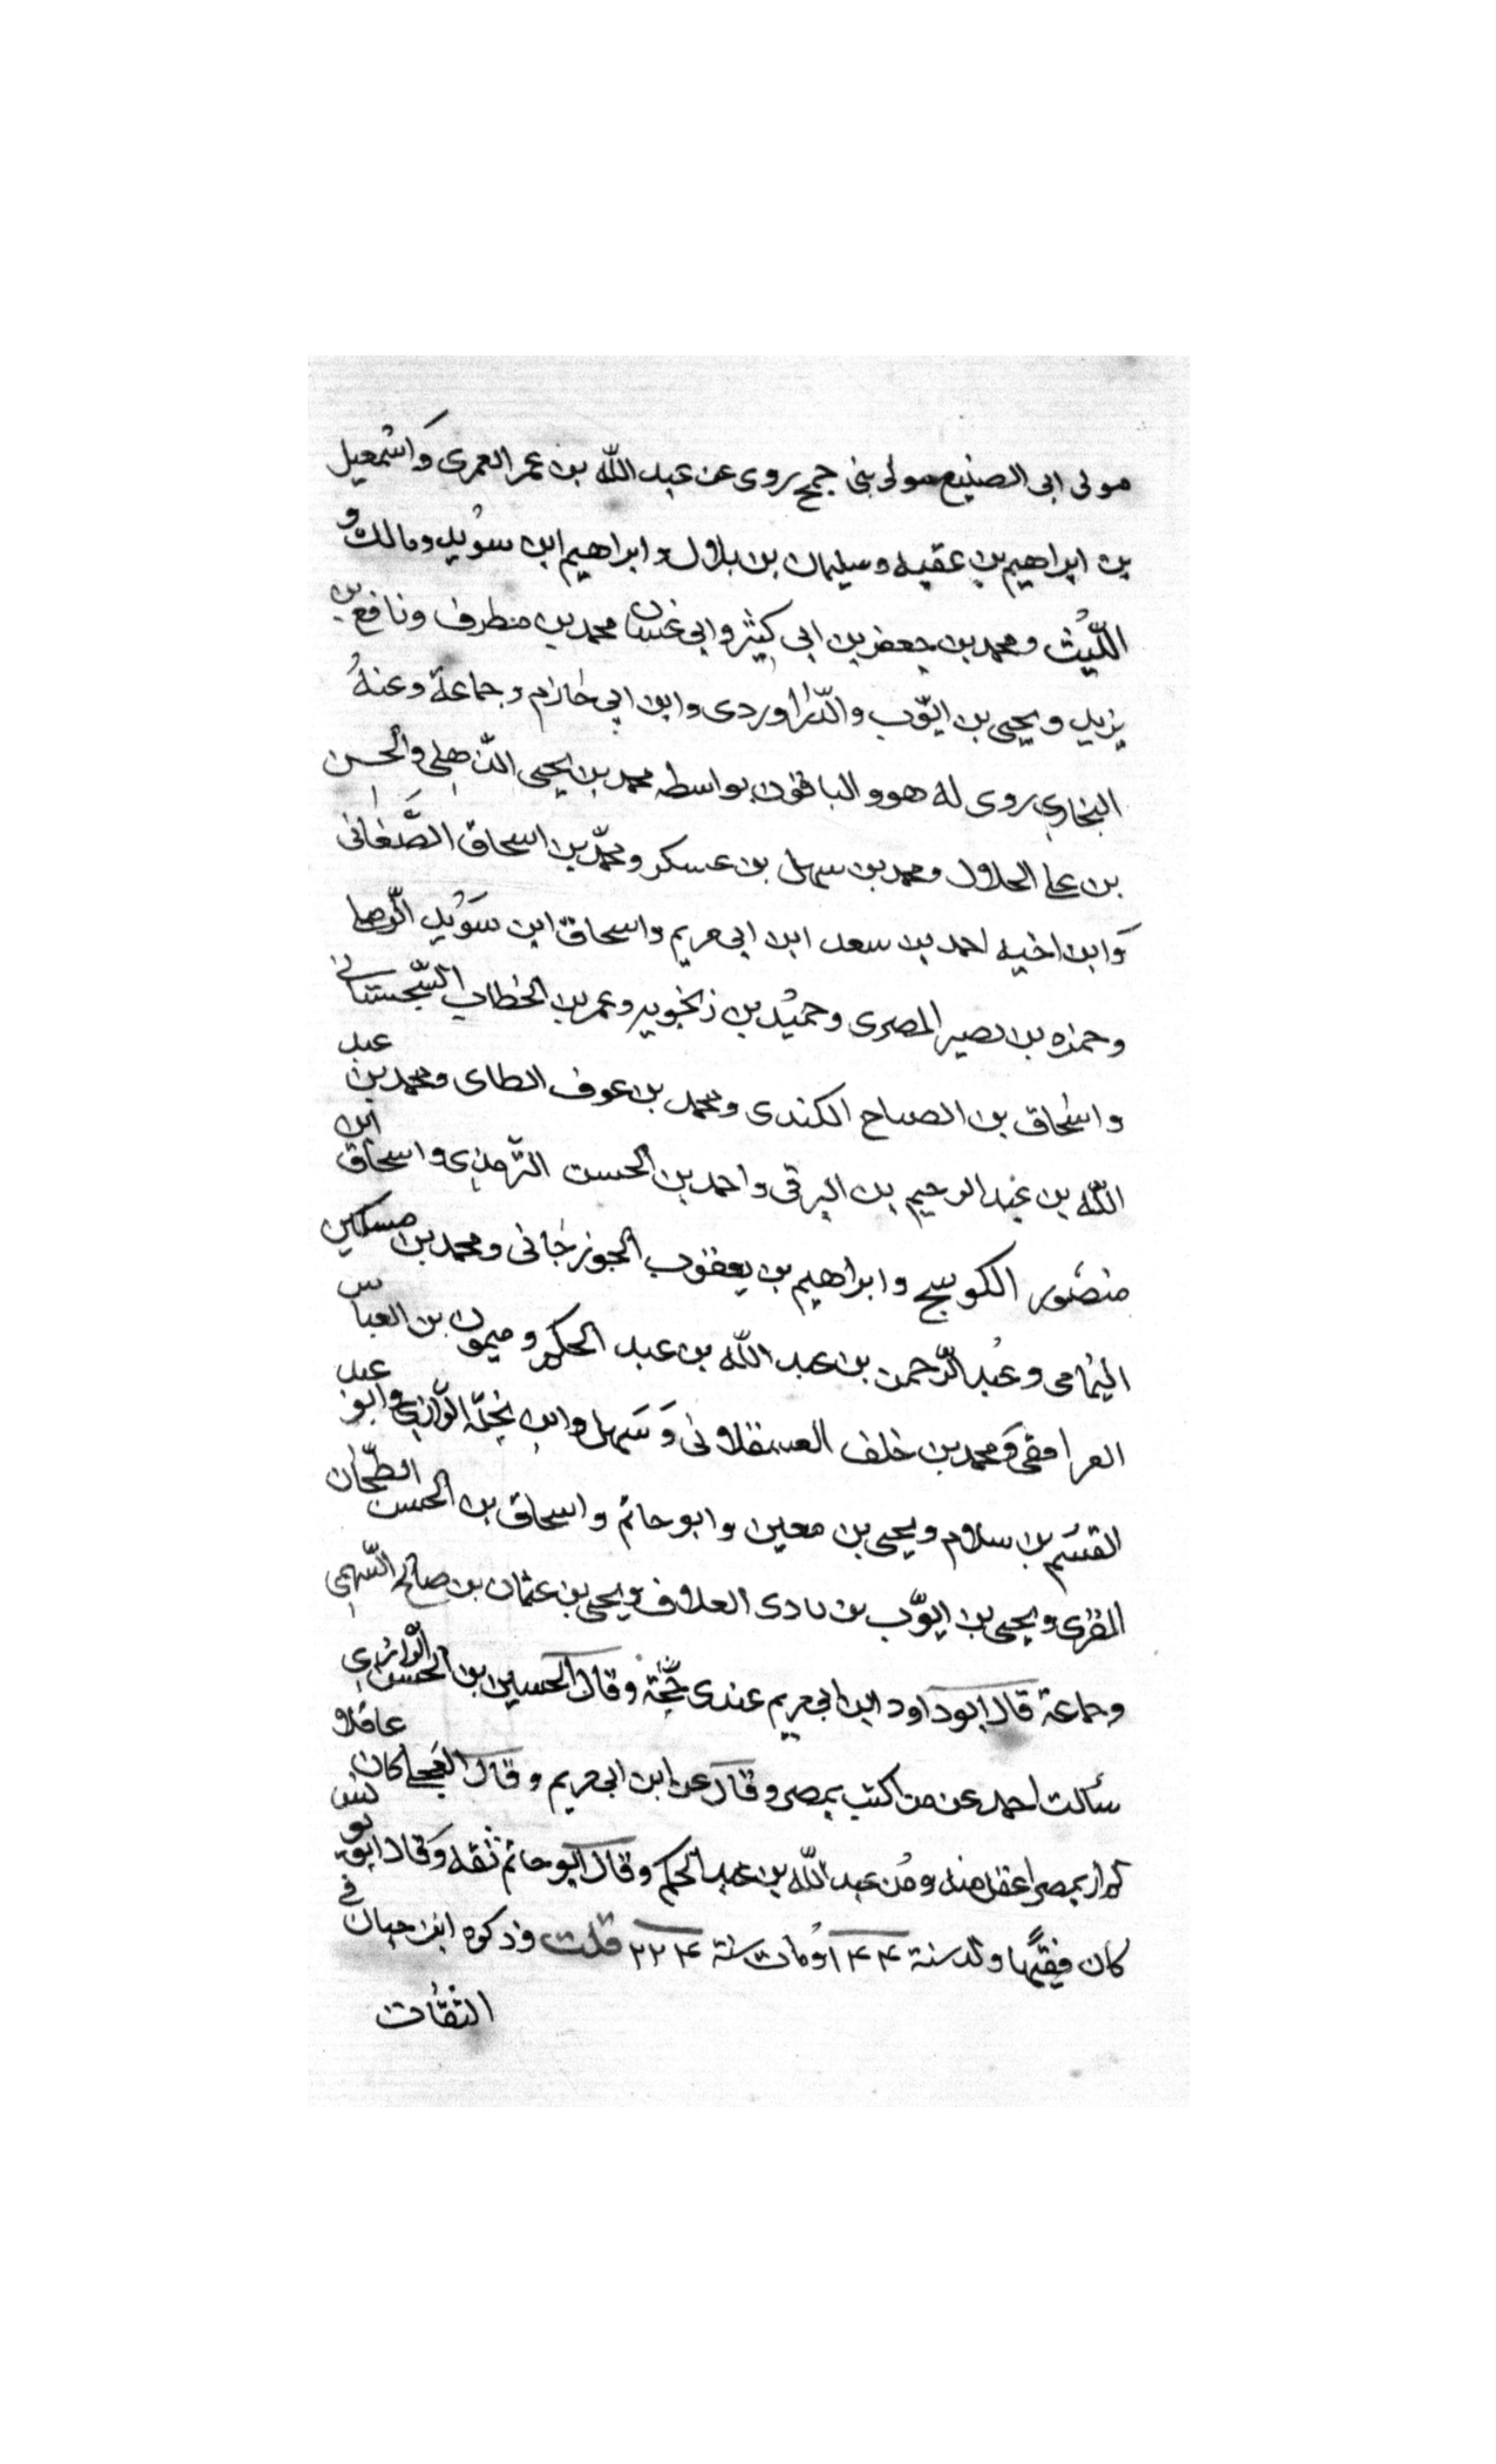 مولى ابى الصنيع مولى بنى جمح روى عن عبد الله بن عمر العمرى وَاسْمعيل
بن ابراهيم بن عقبه وسليمان بن بلال وابراهيم ابن سوُيد ومالك و
اللّيُث ومحمد بن جعفر بن ابى كثير وابى غسان محمد بن مطرف ونافع بن
يزيد ويحيى بن ايوّب والدّراوردى وابن ابى حازم وجماعة وعنهُ
البخارى روى له هو والباقون بواسطه محمد بن يحيى الذهلى والحسن
بن على الحلال ومحمد بن سهل بن عسكر ومحمّد بن اسحاق الصَّغانى
وَابن اخيه احمد بن سعد ابن ابى مريم واسحاق ابن سوَيْد الرّملى
وحمزه بن نصير المصرى وحميْد بن زنجويه وعمر بن الخطاب السّجستانى
واسْحاق بن الصباح الكندى ومحمد بن عوف الطاى ومحمد بن عبد
اللّه بن عبد الرحيم بن البرقى واحمد بن الحسن التّرمذى واسحاق ابن
منصُور الكوسج وابراهيم بن يعقوب الجوزجانى ومحمد بن مسكين
اليُمامى وعبُد الرّحمن بن عبد اللّه بن عبد الحكم وميمون بن العباس
الرافقى وَمحمد بن خلف العسقلانى وَسَهل وابن نجله الرّازى وابو عبد
القسُم بن سلام ويحيى بن معين وابو حاتم واسحاق بن الحسن الطّحان
المقرى ويحيى بن ايوّب بن نادى العلاف ويحيى بن عثمان بن صالح السّهمى
وجماعة قال ابو داود ابن ابى مريم عندى حُجّة وقال الحسين بن الحسن الرّازى
سألت احمد عن من اكتب بمصر وقال عن ابن ابى مريم وقال العجلى كان عاقلا
لم ار بمصر اعقل منه ومُن عبد اللّه بن عبد الحكم وقال ابو حاتم ثقه وَقال ابن يونس
كان فقيهًا ولد سنة ١٤٤ وُمات سنة ٢٢٤ قلت وذكره ابن حبان فى
الثقُات